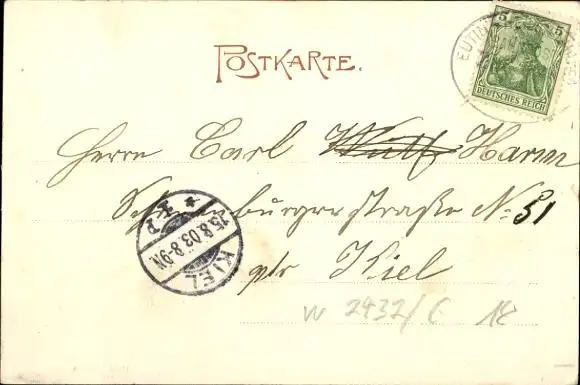 POSTKARTE.
5 5
DEUTSCHES REICH
EUTIN
Herrn Carl Wulf Harm
Schauenburgerstraße No 51
ptr Kiel
KIEL
15.8.03.8-9N.
* P
W 2432/6 18